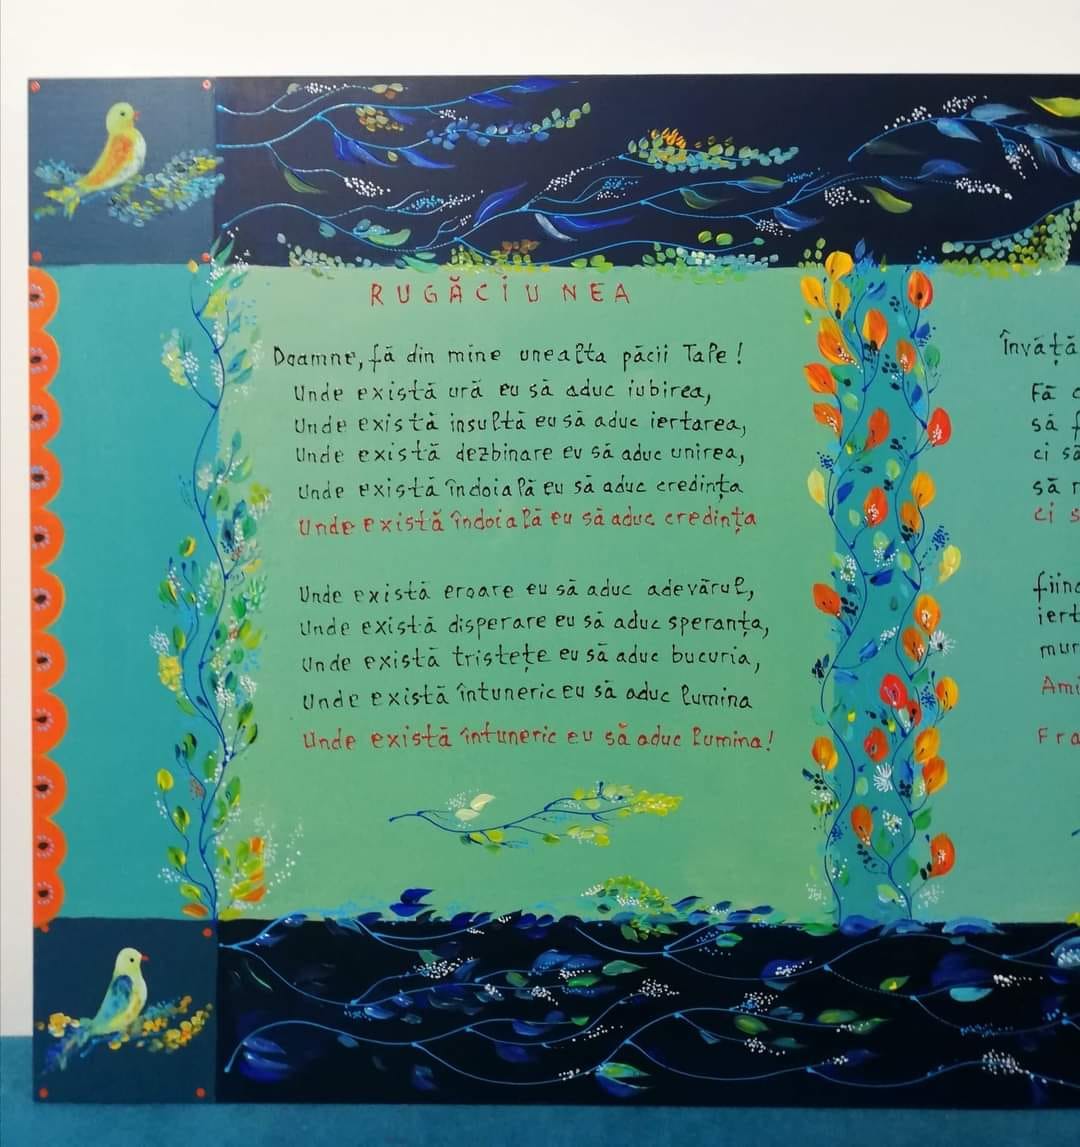 RUGĂCIUNEA
Doamne, fă din mine unealta păcii Tale!
Unde există ură eu să aduc iubirea,
Unde există insultă eu să aduc iertarea,
Unde există dezbinare eu să aduc unirea,
Unde există îndoială eu să aduc credința
Unde există îndoială eu să aduc credința
Unde există eroare eu să aduc adevărul,
Unde există disperare eu să aduc speranța,
Unde există tristețe eu să aduc bucuria,
Unde există întuneric eu să aduc lumina
Unde există întuneric eu să aduc lumina!
Învăță
Fă
să
ci să
să
ci